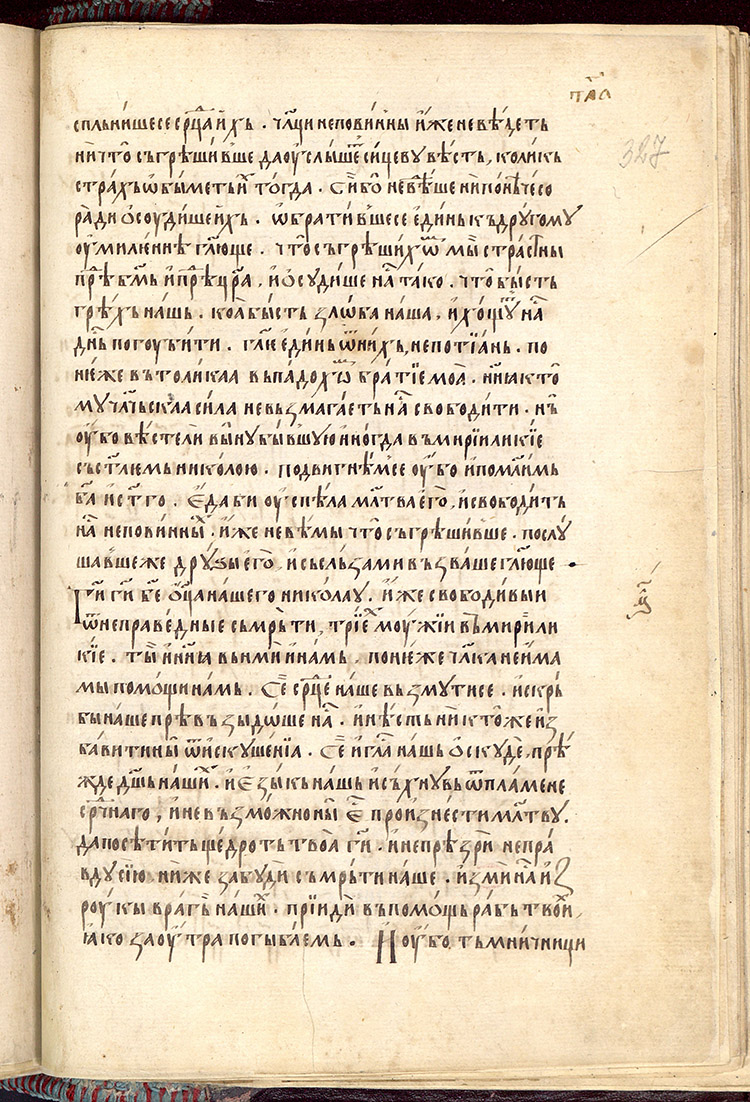 тл҃а
327
спльни́шесе ср҃ца и́хъ . чл҃ци неповѝнны и҆́же не вѣ́детъ
ни что̀ съгрѣши́вше да оу҆слы́шѐ си́цеву вѣ́сть, коли́къ
стра́хъ ѡ҆бы́метъ и҆̀ тогда . сѝ бо̀ не вѣ́ше нѝ поне́ чесо
ра́ди ѡ҆соудѝше и҆́хъ . ѡ҆брати́вшесе е҆ди́нь къ дру́гому
оу҆миле́ннѣ гл҃юще . что̀ съгрѣши́хѡⷨ мы̀ стра́стны
прѣⷣ бг҃мь и҆ прѣⷣ цр҃а , и҆ ѡ҆суди́ше на̀ та́ко . что̀ бы́сть
грѣ́хъ нашь . ко́а бы́сть ѕло́ба на́ша , и҆ хо́щуⷮ на̀
дн҃ь погоу́бити . гл҃ѐ е҆ди́нь ѿ ни́хъ, непотїа́нь . по
ние́же въ толи́каа въпадо́хѡⷨ бра́тїе моа̀ . нн҃ꙗ кто̀
мч҃льскаа си́ла не възмага́еть на̀ свободи́ти . нъ̀
оу҆́бо вѣ́сте ли вы̀ ну бы́вшую и҆ногда въ мирїи ликїе
съ ст҃лемь нико́лою . подви́гнѣмсе оу҆́бо и҆ помл҃имь
ба҃ и҆ ст҃го . е҆да̀ би оу҆спѣ́ла мл҃тва е҆го̀, и҆ свободи́ть
на̀ непови́нныⷯ . и҆́же не вѣ́мы что̀ съгрѣши́вше . послу́
ша́вше же дру́ѕы е҆го̀, и҆ сьсльзами възваше гл҃юще
Гⷭ҇и гⷭ҇и бж҃е ѻ҆ц҃а на́шего нико́лау . и҆́же свободи́выи
ѿ непра́ведные съмръ́ти, трїеⷯ моу́жїи въ мирѣ́ ли
кїе . ты̀ и҆ нн҃ꙗ въньмѝ и҆ на́мь . поние́же чл҃ка не и҆́ма
мы помо́щи на́мь . сѐ срⷣце на́ше възмути́се . и҆ скръ
бы на́ше прѣвъзыдо́ше на̀ . и҆ нѣ́сть никто̀же и҆з
ба́вити ны̀ ѿ и҆скуше́нїа . сѐ и҆ гла̀ нашь ѻ҆скудѐ, прѣ́
жде дш҃ь на́шиⷯ . и҆ е҆зы́кь нашь и҆съ́хнувь ѿ пла́мене
ср҃чнаго , и҆ не възмо́жно ны̀ е҆̀ произне́сти мл҃тву .
да посѣ́тить щедро́ть твоа̀ гⷭ҇и . и҆ не прѣзрѝ не пра́
вдусїю, ни́же забу́ди съмръ́ти на́ше . и҆змѝ на̀ и҆з
роу́кы вра́гь на́шиⷯ . прїидѝ въ помо́щь ра́бъ твоиⷯ,
ꙗ҆ко заоу́тра погыба́емь . И оу҆́бо тъмни́чници